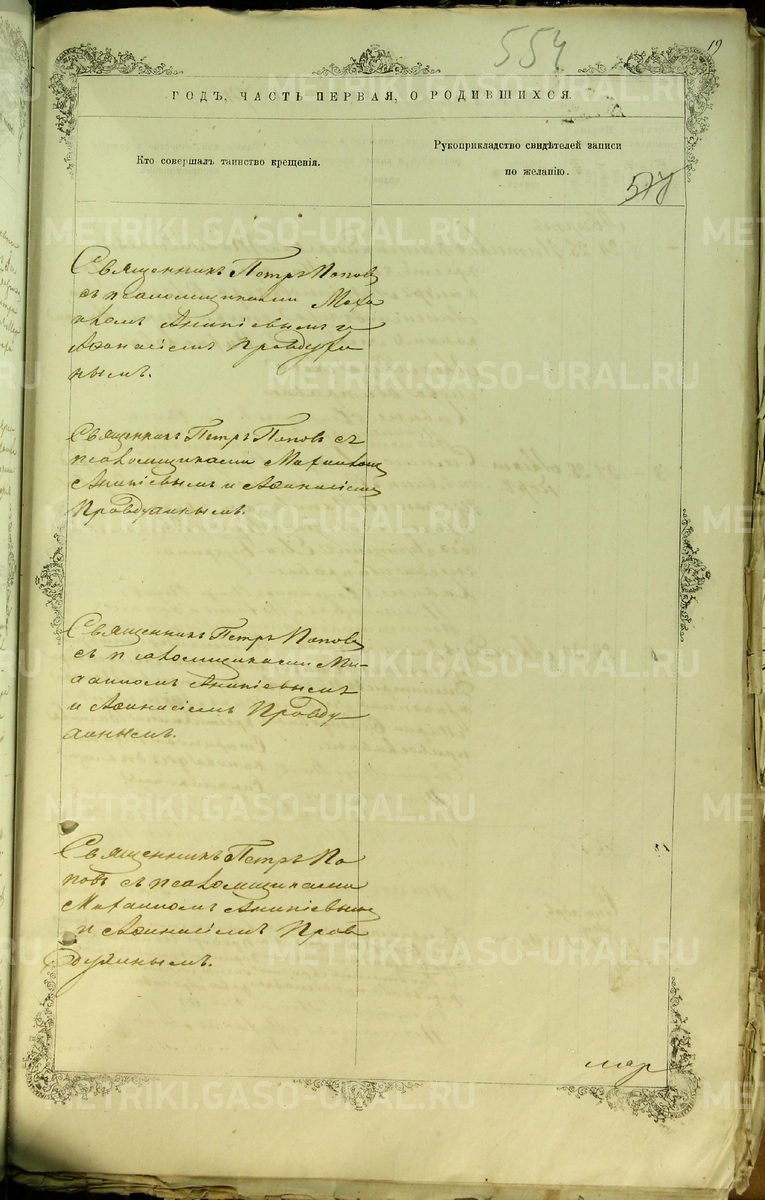 554
19
ГОДЪ, ЧАСТЬ ПЕРВАЯ, О РОДИВШИХСЯ.
Кто совершалъ таинство крещенія.
Рукоприкладство свидѣтелей записи
по желанію.
577
Священникъ Петръ Поповъ
съ псаломщиками Миха
иломъ Аникіевымъ и
Аѳанасіемъ Правдухи
нымъ.
Священникъ Петръ Поповъ съ
псаломщиками Михаиломъ
Аникіевымъ и Аѳанасіемъ
Правдухинымъ.
Священникъ Петръ Поповъ
съ псаломщиками Ми-
хаиломъ Аникіевымъ
и Аѳанасіемъ Правду
хинымъ.
Священникъ Петръ По
повъ съ псаломщиками
Михаиломъ Аникіевымъ
и Аѳанасіемъ Прав
духинымъ.
мар
METRIKI.GASO-URAL.RU